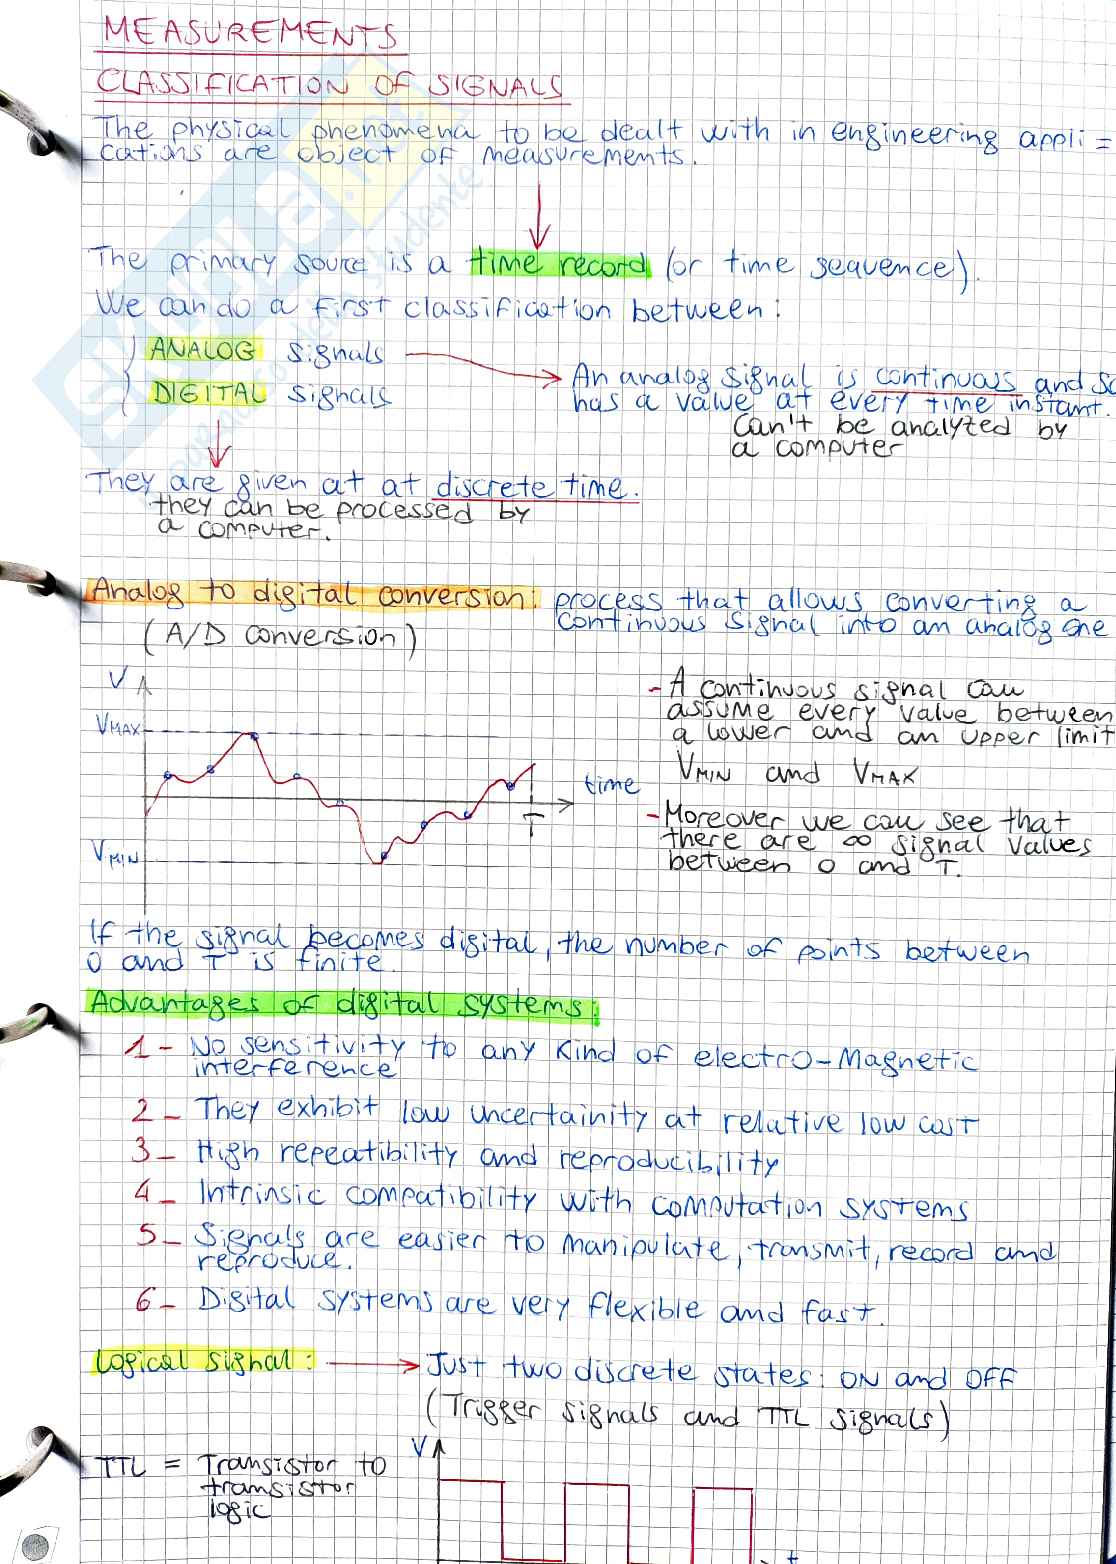 MEASUREMENTS
CLASSIFICATION OF SIGNALS
The physical phenomena to be dealt with in engineering appli=
cations are object of measurements.
The primary source is a time record (or time sequence).
We can do a first classification between:
ANALOG signals
An analog signal is continuous and so
DIGITAL signals
has a value at every time instant.
Can't be analyzed by
a computer
They are given at at discrete time.
they can be processed by
a computer.
Analog to digital conversion: process that allows converting a
continuous signal into an analog one
(A/D conversion)
V
VMAX
time
T
VMIN
- A continuous signal can
assume every value between
a lower and an upper limit
VMIN and VMAX
- Moreover we can see that
there are ∞ signal values
between 0 and T.
If the signal becomes digital, the number of points between
0 and T is finite.
Advantages of digital systems:
1 - No sensitivity to any kind of electro-Magnetic
interference
2 - They exhibit low uncertainity at relative low cost
3 - High repeatibility and reproducibility
4 - Intrinsic compatibility with computation systems
5 - Signals are easier to manipulate, transmit, record and
reproduce.
6 - Digital systems are very flexible and fast.
Logical signal: Just two discrete states: ON and OFF
(Trigger signals and TTL signals)
TTL = Transistor to
transistor
logic
V
t
SKUOLA.net